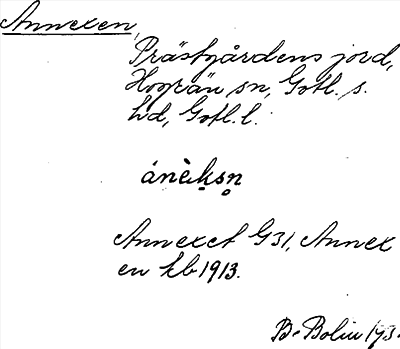 Annexen,
Prästgårdens jord,
Hogrän sn, Gotl. s.
hd, Gotl. l.
ánèksn̥
Annexet G31, Annex
en kb 1913.
B. Bolin